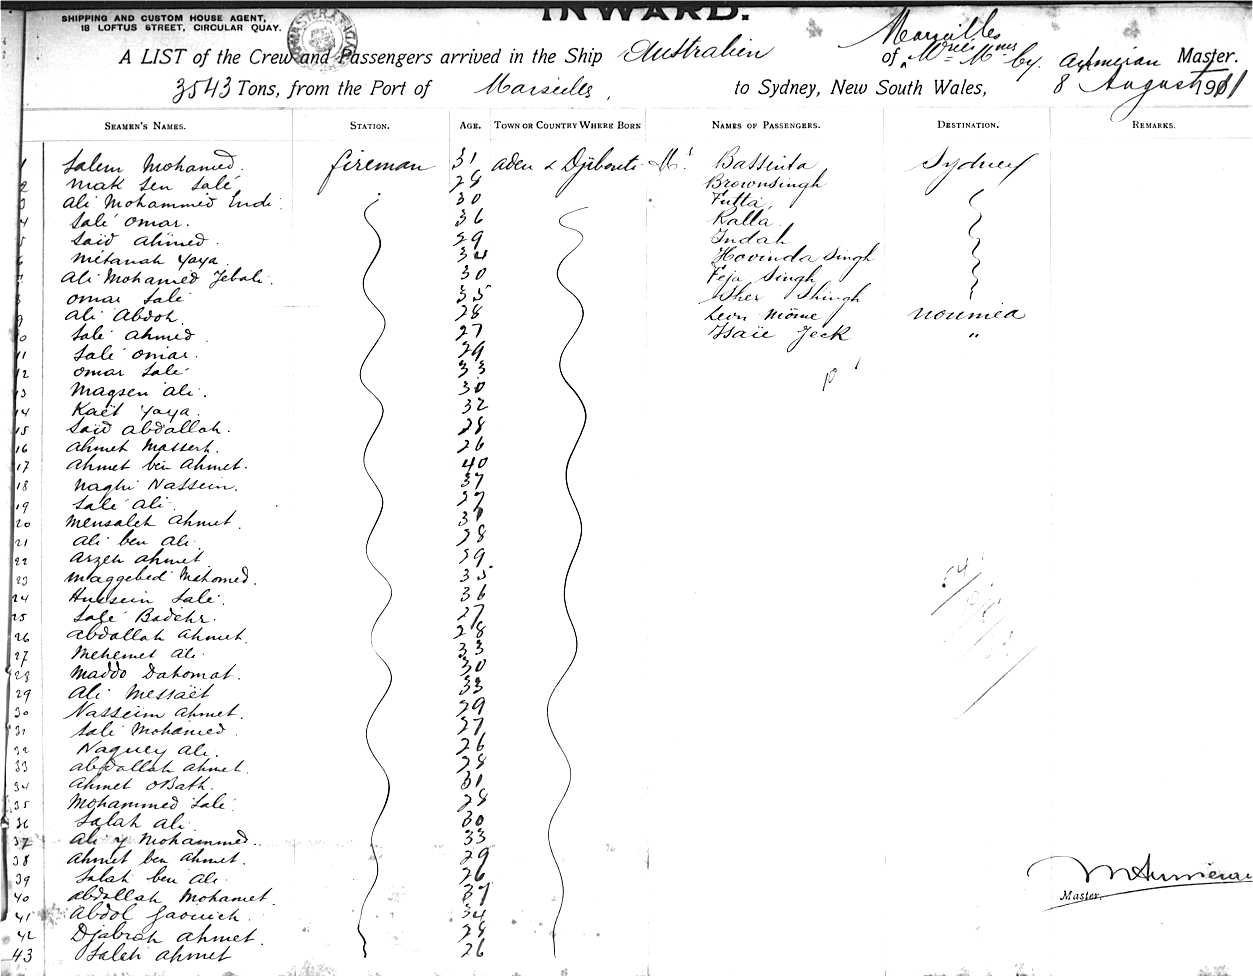 INWARD.
SHIPPING AND CUSTOM HOUSE AGENT,
18 LOFTUS STREET, CIRCULAR QUAY.
A LIST of the Crew and Passengers arrived in the Ship Australien of Marseilles Master.
3543 Tons, from the Port of Marseilles, to Sydney, New South Wales, 8 August 1911
SEAMEN'S NAMES. STATION. AGE. TOWN OR COUNTRY WHERE BORN NAMES OF PASSENGERS. DESTINATION. REMARKS.
1 Salem Mohamed. fireman 31 aden & Djibouti Bassinta Sydney
2 Mak Sen Salé 28 Brownsingh
3 Ali Mohammed Endi. 30 Futta
4 Salé Omar. 36 Ralla
5 Saïd Ahmed. 29 Indah
6 Métanah Yaya. 34 Hovinda Singh
7 Ali Mohamed Jebali. 30 Feja Singh
8 Omar Salé 35 Sher Shingh
9 Ali Abdoh. 28 Leon Noumea
10 Salé Ahmed. 27 Isaïe Jeck "
11 Salé Omar. 29
12 Omar Salé 33
13 Maqsen Ali. 30
14 Kaët Yaya. 32
15 Saïd Abdallah. 28
16 Ahmet Massert. 26
17 Ahmet ben Ahmet. 40
18 Naghi Nassein. 37
19 Salé Ali. 27
20 Mensaleh Ahmet. 30
21 Ali ben Ali. 28
22 Arzeh Ahmet. 29
23 Maggebed Mohomed. 35
24 Hussein Salé. 36
25 Salé Badehr. 27
26 Abdallah Ahmet. 28
27 Mehemet Ali. 33
28 Maddo Dahomat. 30
29 Ali Messaët 33
30 Nasseim Ahmet. 29
31 Salé Mohamed. 27
32 Naguey Ali. 26
33 Abdallah Ahmet. 28
34 Ahmet OBath. 31
35 Mohammed Salé. 28
36 Salah Ali. 30
37 Ali y Mohammed. 33
38 Ahmet ben Ahmet. 29
39 Salah ben Ali. 26
40 Abdallah Mohamet. 37
41 Abdol Jaouich. 34
42 Djabrah Ahmet. 28
43 Saleh Ahmet 26
Master.